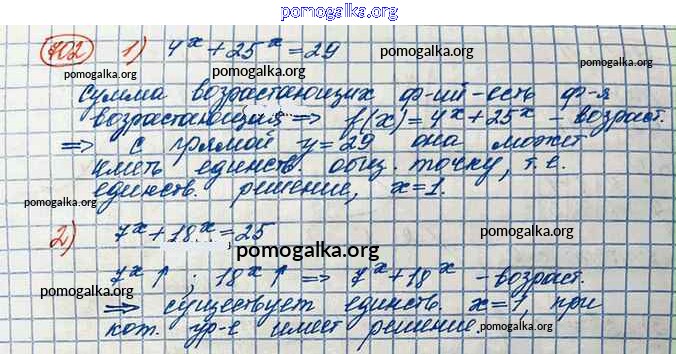 pomogalka.org
702 1) 4^x + 25^x = 29
pomogalka.org
pomogalka.org
pomogalka.org
Сумма возрастающих ф-ий - есть ф-я
возрастающая ⟹ f(x) = 4^x + 25^x - возраст.
⟹ с прямой y = 29 она может
pomogalka.org
иметь единств. общ. точку, т.е.
единств. решение, x = 1.
pomogalka.org
pomogalka.org
2) 7^x + 18^x = 25
pomogalka.org
pomogalka.org
7^x ↑ ; 18^x ↑ ⟹ 7^x + 18^x - возраст.
pomogalka.org
⟹ существует единств. x = 1, при
кот. ур-е имеет решение.
pomogalka.org